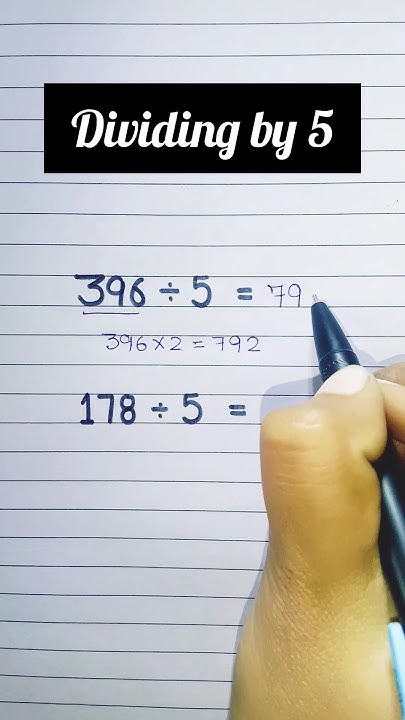 Dividing by 5
396 ÷ 5 = 79
396 × 2 = 792
178 ÷ 5 =